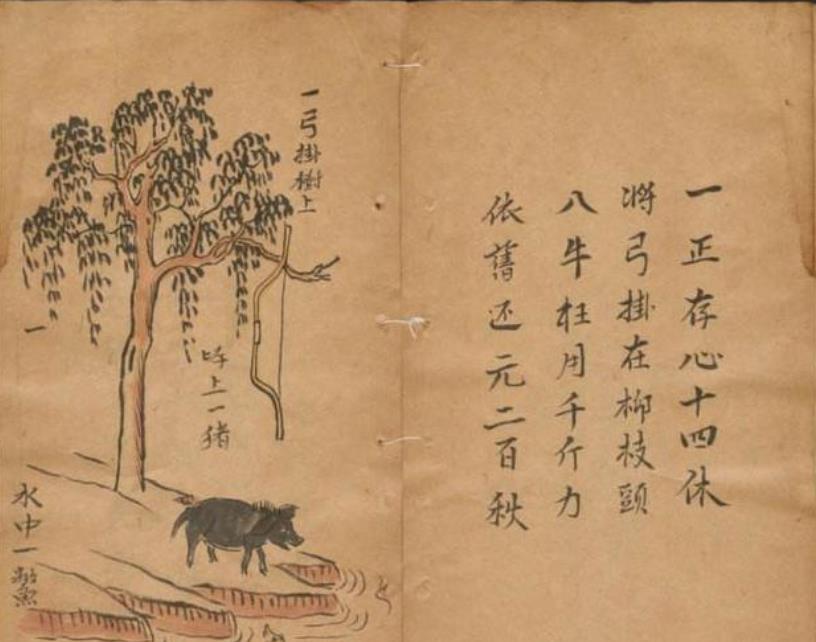 一正存心十四休
将弓掛在柳枝頭
八牛枉用千斤力
依舊还元二百秋
一弓掛樹上
岸上一猪
一
水中一